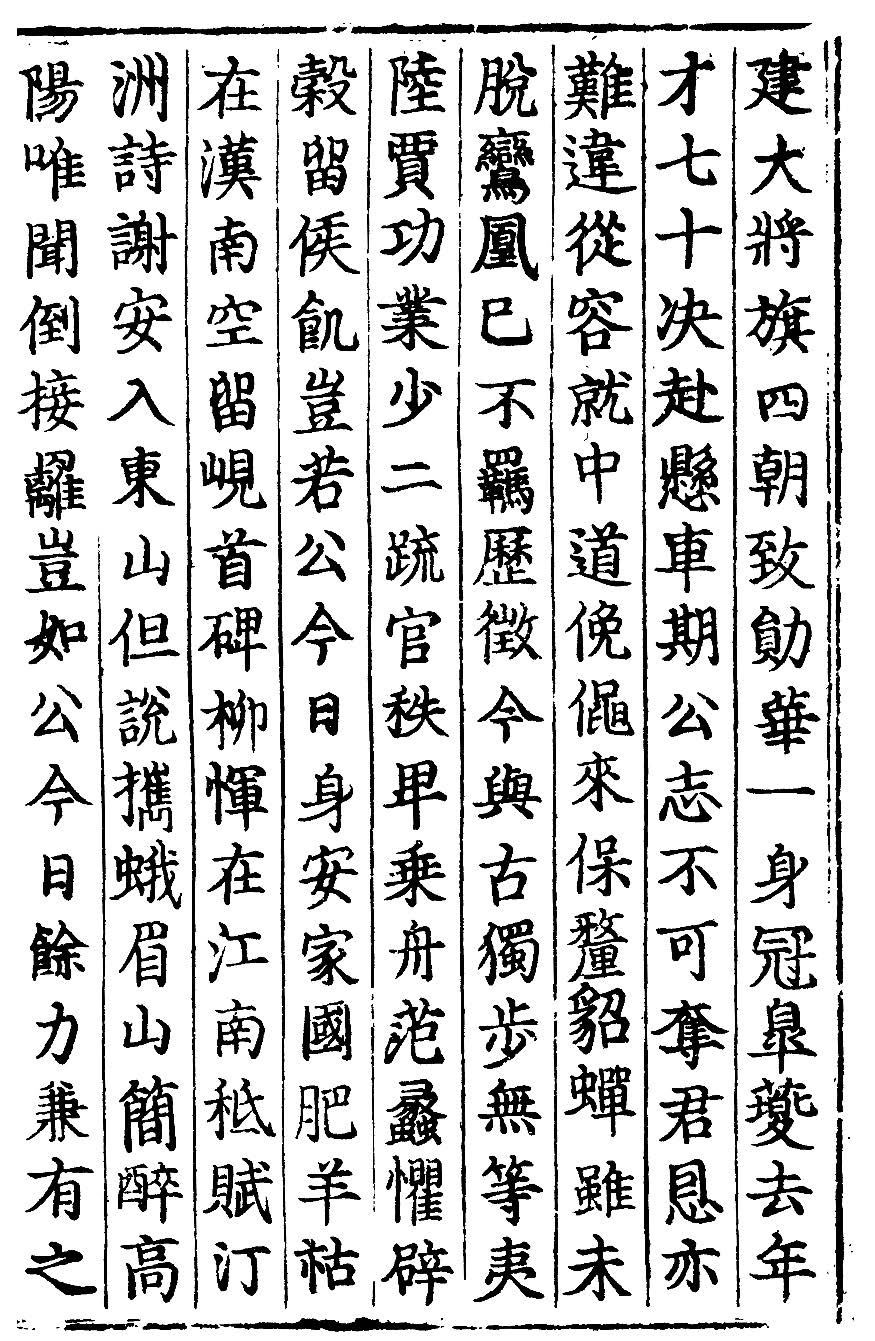 建大將旗四朝致勛華一身冠皐夔去年
才七十决赴懸車期公志不可奪君恩亦
難違從容就中道俛僶來保釐貂蟬雖未
脫鸞凰已不羈歷徵今與古獨步無等夷
陸賈功業少二疏官秩卑乗舟范蠡懼辟
穀留侯飢豈若公今日身安家國肥羊祜
在漢南空留峴首碑柳惲在江南秪賦汀
洲詩謝安入東山但說攜蛾眉山簡醉高
陽唯聞倒接䍦豈如公今日餘力兼有之